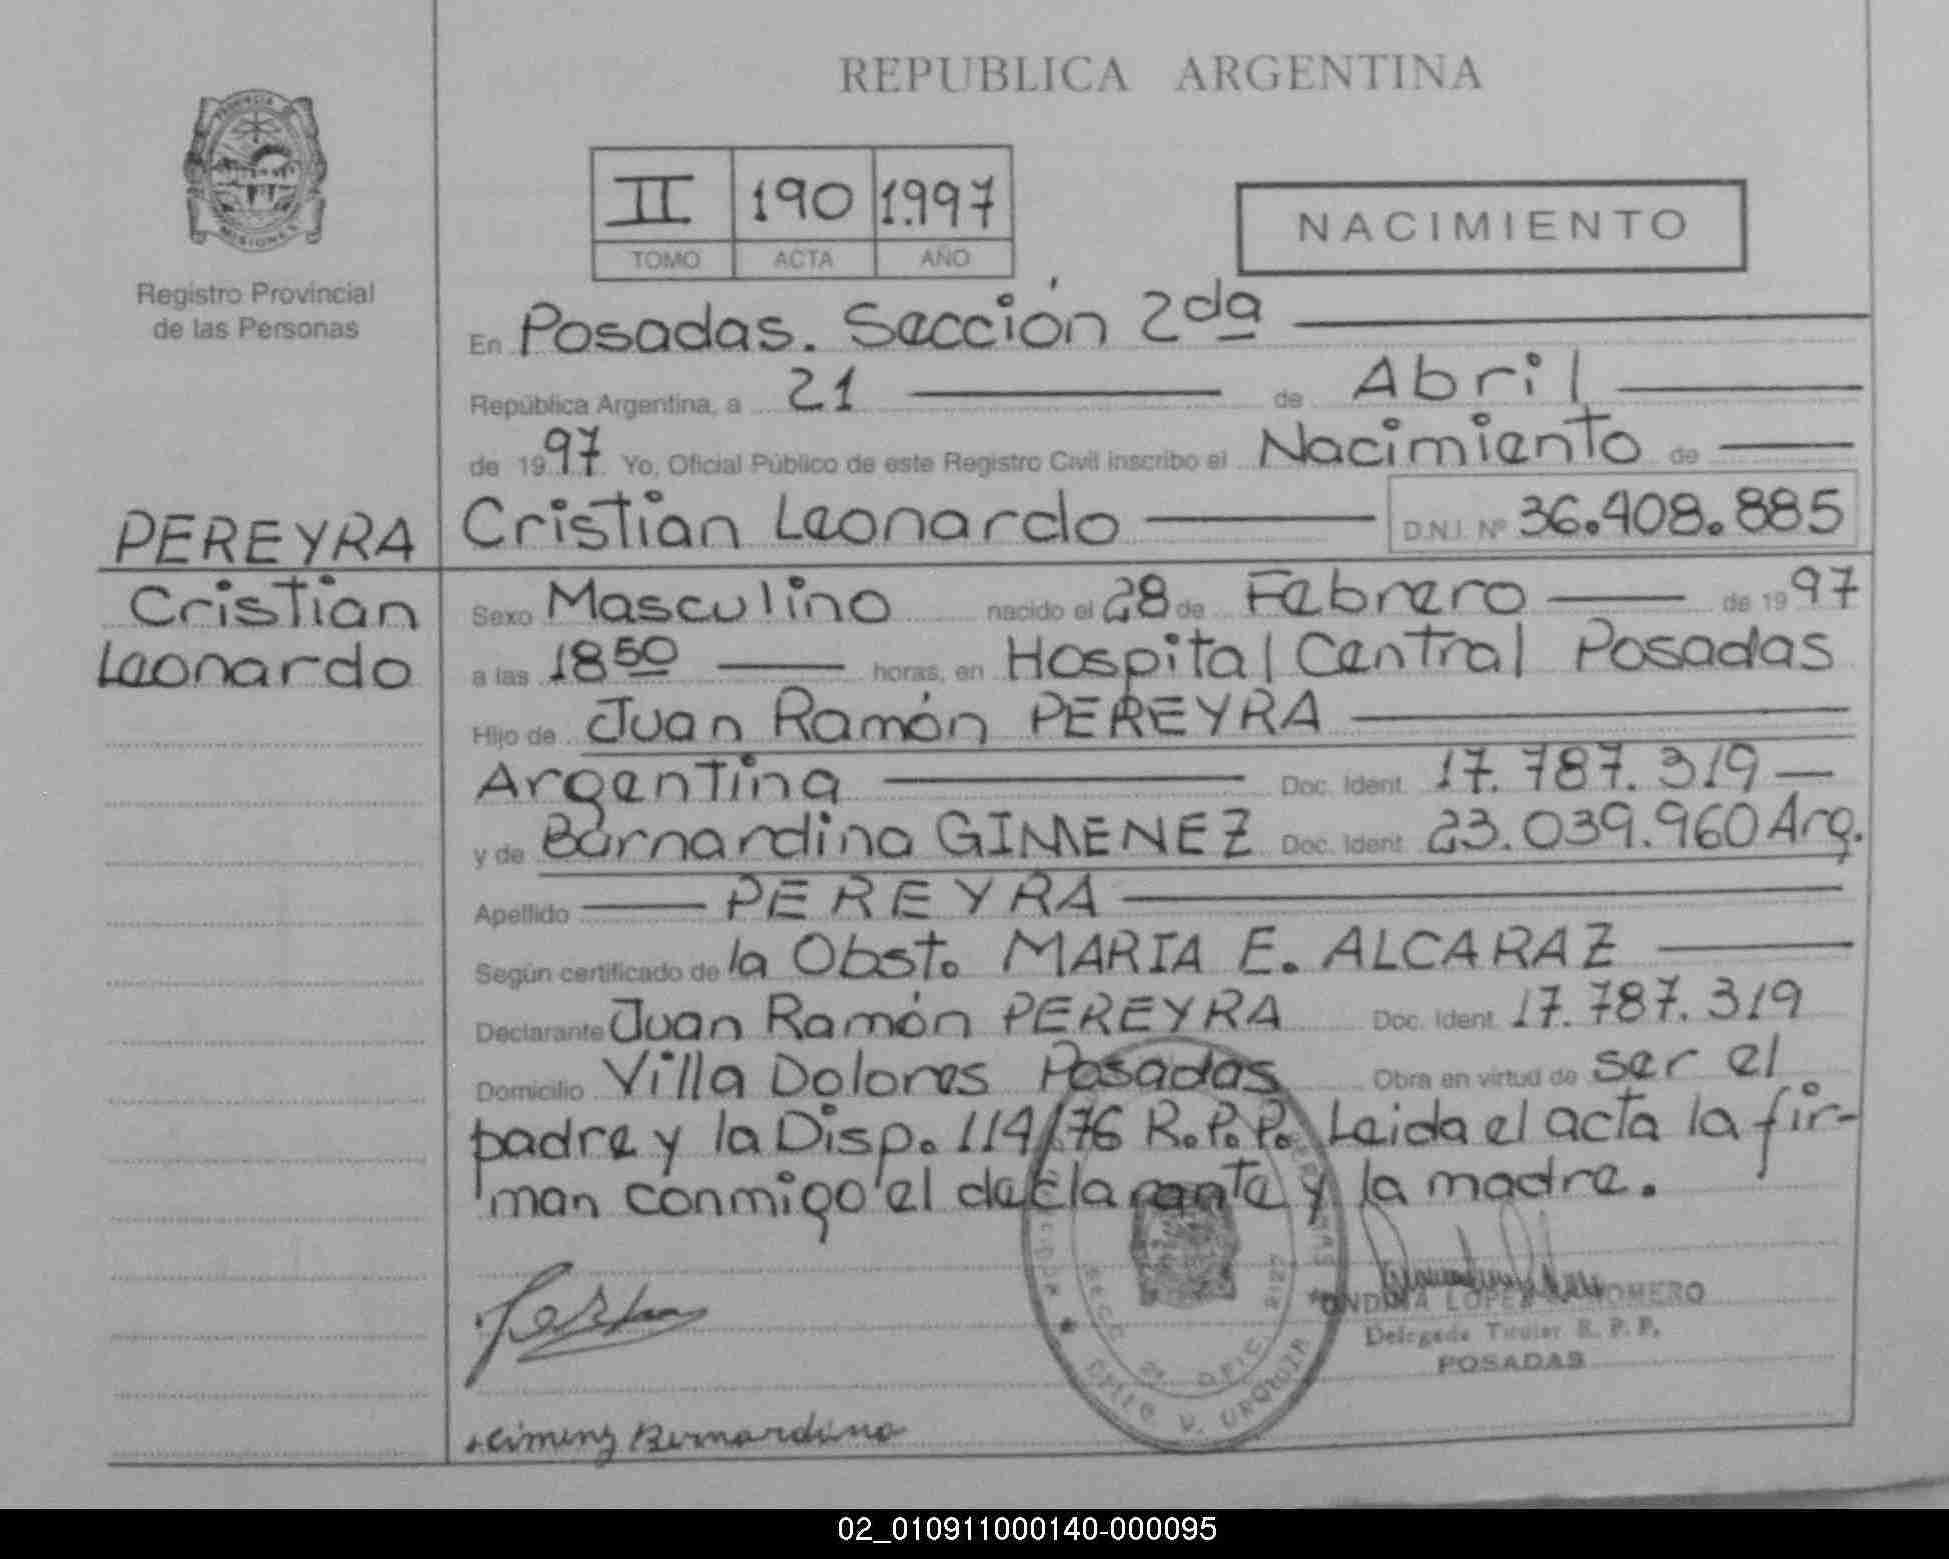 REPUBLICA ARGENTINA
PROVINCIA
MISIONES
Registro Provincial
de las Personas
II 190 1.997
TOMO ACTA AÑO
NACIMIENTO
En Posadas. Sección 2da
República Argentina, a 21 de Abril
de 1997 Yo, Oficial Público de este Registro Civil inscribo el Nacimiento de
PEREYRA
Cristian
Leonardo
Cristian Leonardo D.N.I. Nº 36.408.885
Sexo Masculino nacido el 28 de Febrero de 1997
a las 18 50 horas, en Hospital Central Posadas
Hijo de Juan Ramón PEREYRA
Argentina Doc. Ident. 17.787.319
y de Bernardina GIMENEZ Doc. Ident. 23.039.960 Arg.
Apellido PEREYRA
Según certificado de la Obst. MARIA E. ALCARAZ
Declarante Juan Ramón PEREYRA Doc. Ident. 17.787.319
Domicilio Villa Dolores Posadas Obra en virtud de ser el
padre y la Disp. 114/76 R.P.P. Leida el acta la fir-
man conmigo el declarante y la madre.
LOPEZ ROMERO
Delegada Titular R. P. P.
POSADAS
SECC. 2a. OFIC.
DELIO V. URQUOIA
Gimenz Bernardina
02_010911000140-000095